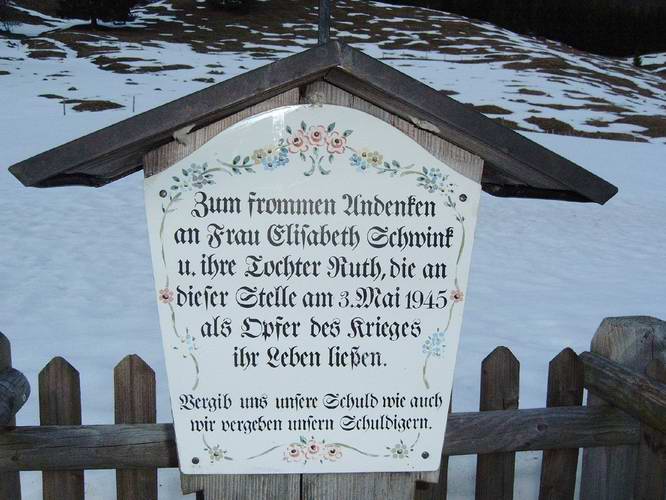 Zum frommen Andenken
an Frau Elisabeth Schwink
u. ihre Tochter Ruth, die an
dieser Stelle am 3. Mai 1945
als Opfer des Krieges
ihr Leben ließen.
Vergib uns unsere Schuld wie auch
wir vergeben unsern Schuldigern.